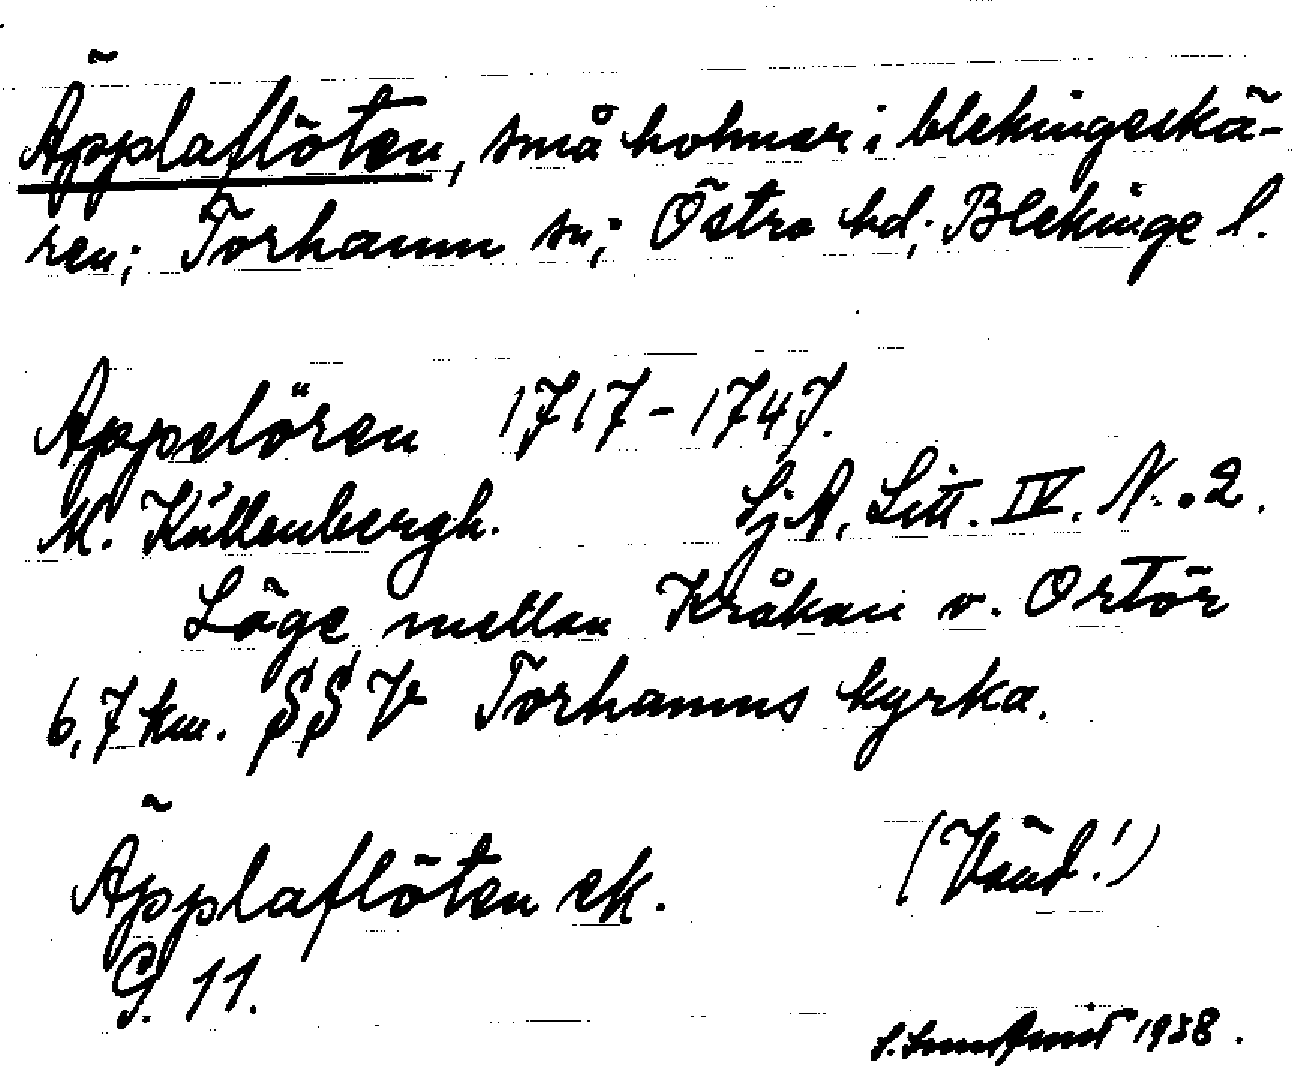 Äpplaflöten, små holmar i blekingeskä-
ren; Torhamn sn; Östra hd; Blekinge l.
Appelören 1717-1747.
M. Küllenbergh. Sj.A. Litt. IV. N. 2.
Läge mellan Kråkan o. Ortör
6,7 km. SSV Torhamns kyrka.
Äpplaflöten ek. (Vänd!)
G. 11.
1938.